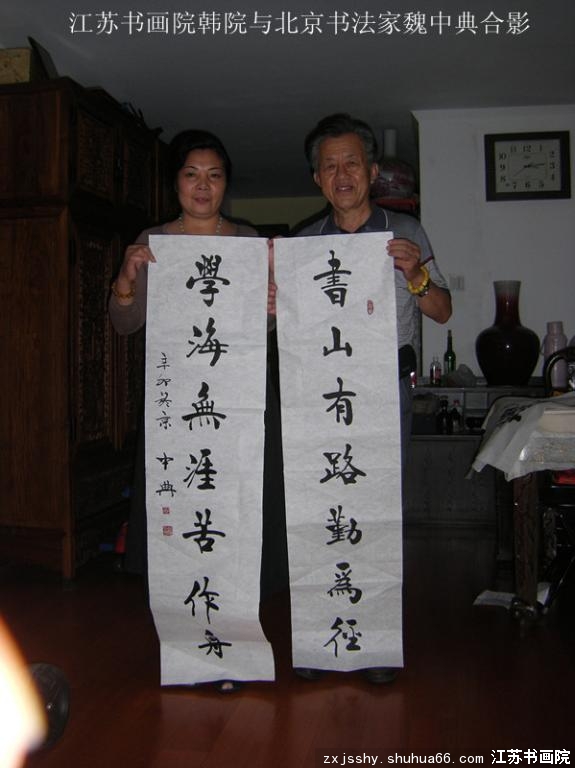 江苏书画院韩院与北京书法家魏中典合影
書山有路勤為徑
學海無涯苦作舟
辛卯於京 中典
zxjsshy.shuhua66.com 江苏书画院